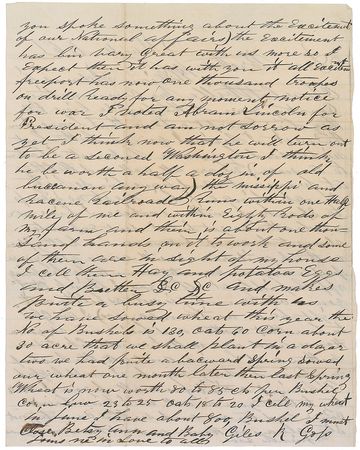 you spoke something about the Excitement
of our National affairs) the Excitement
has bin vary Great with us more so I
Expect then it has with you it all Excitm
freeport has now one thousand troopes
on drill Ready for any moments notice
for war I voted Abram Lincoln for
President and am not sorrow as
yet I think now that he will turn out
to be a seconed Washington I think
he be worth a half a dozin of old
buccanon any way) the missippi and
Racene Railroade Runs within one half
mile of me and within Eighty Rods of
my farm and their is about one thou
sand hands on it to work and some
of them are in sight of my house
I cell them Hay and potatoes Eggs
and Butter &c &c and makes
quite a busy time with us
we have sowed wheat this year the
No of Bushels is 130 oats 60 Corn about
30 acre that we shall plant in a day or
two we had quite a bacward Spring sowed
our wheat one month later then last Spring
Wheat is now worth 80 to 85 cts per Bushel
corn 23 to 25 oats 18 to 20 I cell my wheat
in June I have about 800 Bushel I must
Close Betsey Ann and Baby Giles K Goss
Joins me in Love to all